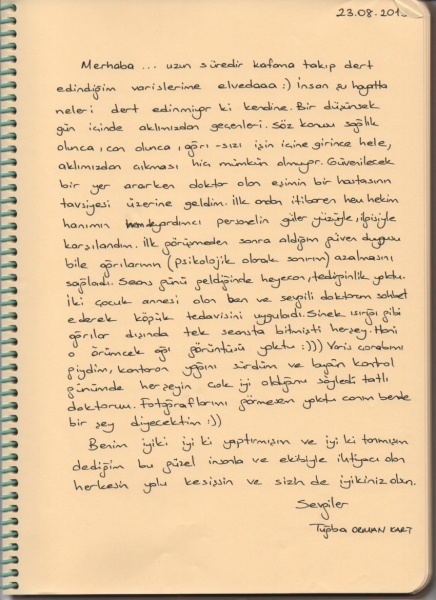 23.08.201
Merhaba ... uzun süredir kafama takıp dert
edindiğim varislerime elvedaaa :) İnsan şu hayatta
neleri dert edinmiyor ki kendine. Bir düşünsek
gün içinde aklımızdan geçenleri. Söz konusu sağlık
olunca, can olunca, ağrı-sızı işin içine girince hele,
aklımızdan çıkması hiç mümkün olmuyor. Güvenilecek
bir yer ararken doktor olan eşimin bir hastasının
tavsiyesi üzerine geldim. İlk andan itibaren hem hekim
hanımın yardımcı personelin güler yüzüyle, ilgisiyle
karşılandım. İlk görüşmeden sonra aldığım güven duygusu
bile ağrılarımın (psikolojik olarak sanırım) azalmasını
sağladı. Seans günü geldiğinde heyecan, tedirginlik yoktu.
İki çocuk annesi olan ben ve sevgili doktorum sohbet
ederek köpük tedavisini uyguladı. Sinek ısırığı gibi
ağrılar dışında tek seansta bitmişti herşey. Hani
o örümcek ağı görüntüsü yoktu :))) Varis çorabımı
giydim, kantaron yağını sürdüm ve bugün kontrol
günümde herşeyin çok iyi olduğunu söyledi tatlı
doktorum. Fotoğraflarını görmesem yoktu canım bende
bir şey diyecektim :))
Benim iyiki iyi ki yaptırmışım ve iyi ki tanımışım
dediğim bu güzel insanla ve ekibiyle ihtiyacı olan
herkesin yolu kesişsin ve sizin de iyikiniz olsun.
Sevgiler
Tuğba ORMAN KART